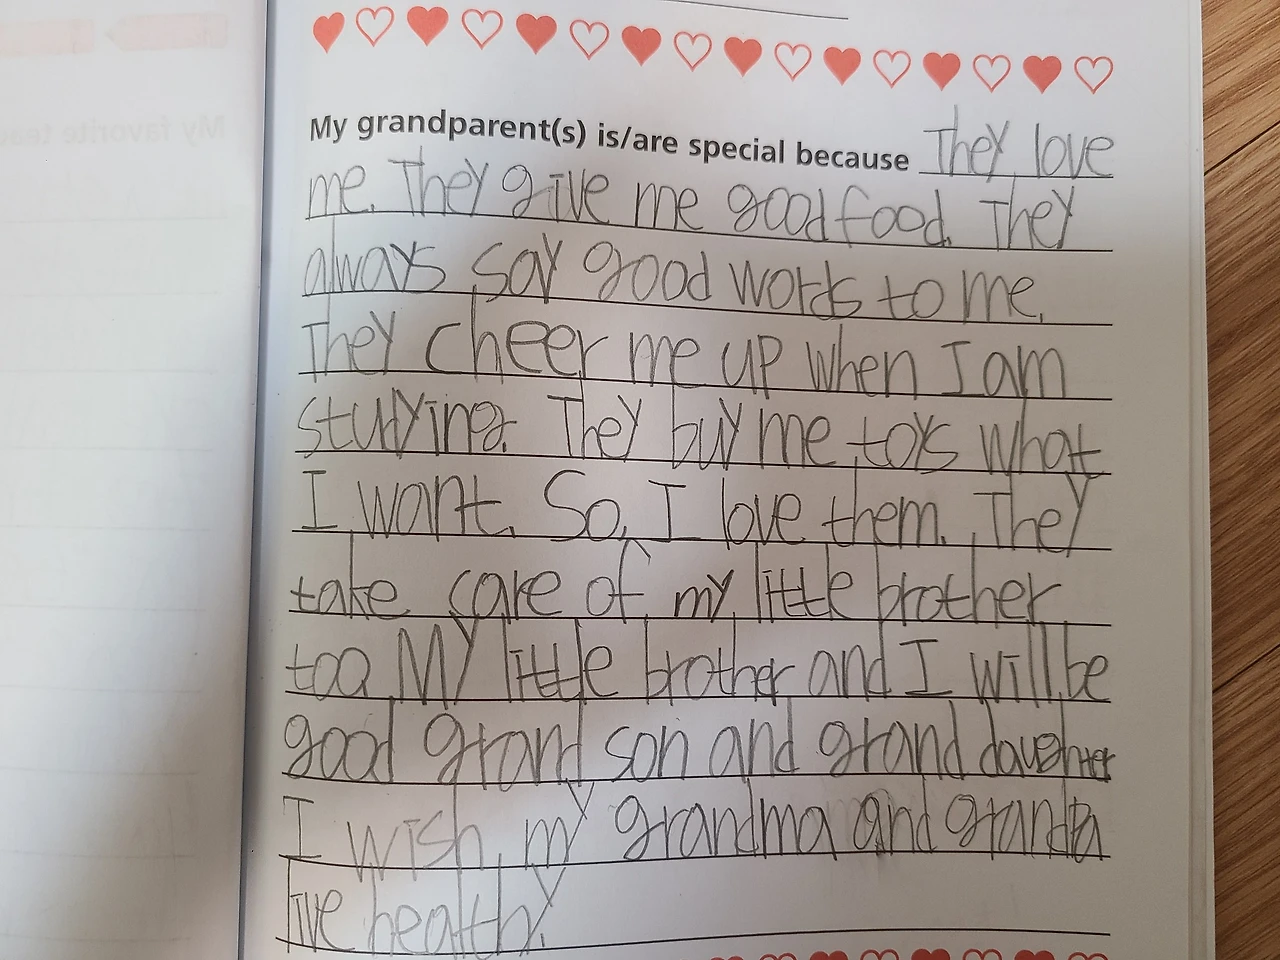 My grandparent(s) is/are special because They love
me. They give me good food. They
always say good words to me.
They cheer me up when I am
studying. They buy me toys what
I want. So, I love them. They
take care of my little brother
too. My little brother and I will be
good grand son and grand daughter
I wish my grandma and grandpa
live healthy.